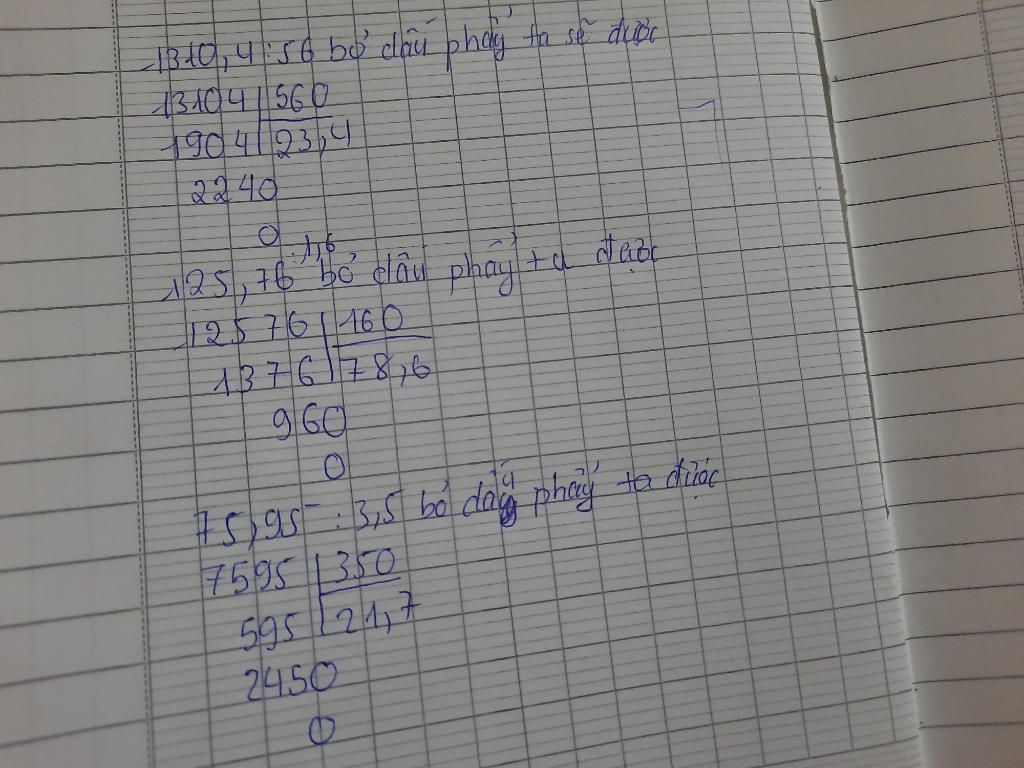 1310,4 : 56 bỏ dấu phẩy ta sẽ được
13104 560
1904 23,4
2240
0
125,76 : 1,6 bỏ dấu phẩy ta được
12576 160
1376 78,6
960
0
75,95 : 3,5 bỏ dấu phẩy ta được
7595 350
595 21,7
2450
0